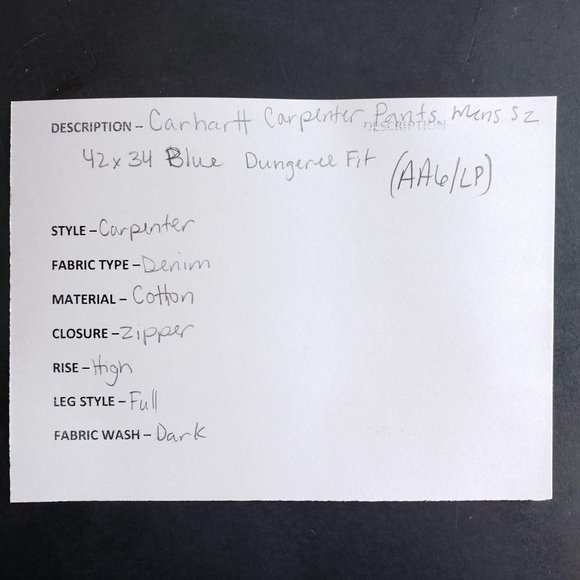 DESCRIPTION -- Carhartt Carpenter Pants Mens SZ
DESCRIPTION
42x34 Blue Dungeree Fit (AA6/LP)
STYLE – Carpenter
FABRIC TYPE – Denim
MATERIAL – Cotton
CLOSURE – Zipper
RISE – High
LEG STYLE – Full
FABRIC WASH – Dark